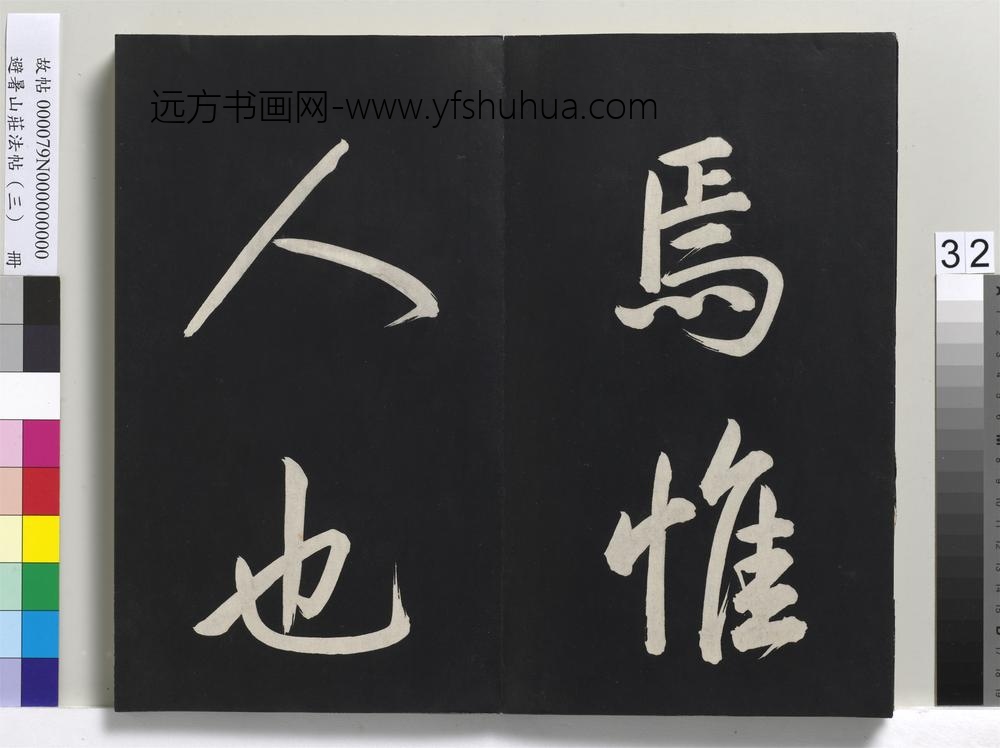 焉惟
人也
远方书画网-www.yfshuhua.com
故帖 000079N000000000
避暑山莊法帖（三） 冊
32